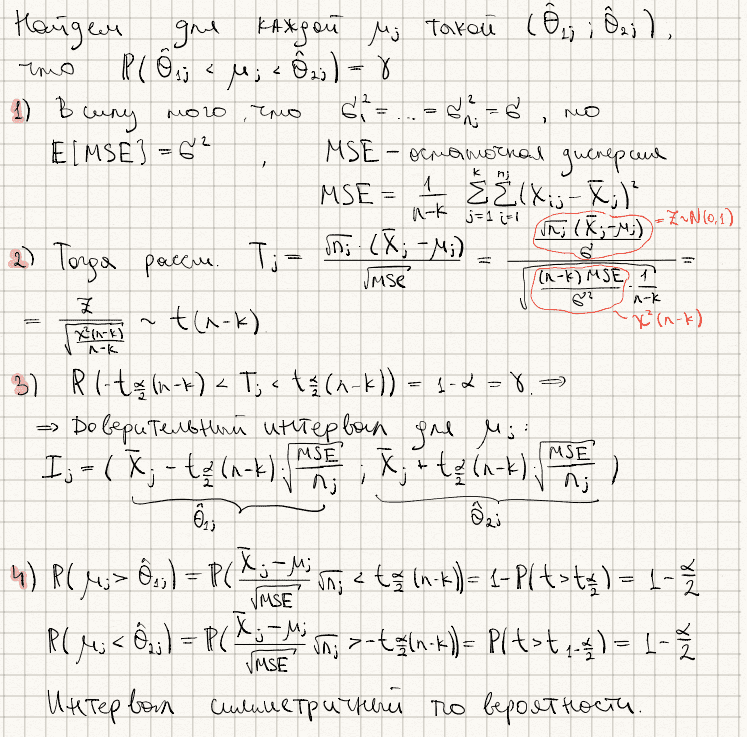 Найдем для каждой μj такой (θ̂1j ; θ̂2j),
что P(θ̂1j < μj < θ̂2j) = γ
1) В силу того, что σ1² = ... = σnj² = σ, то
E[MSE] = σ², MSE – остаточная дисперсия
MSE = 1/(n-k) Σ(j=1..k) Σ(i=1..nj) (Xij - X̄j)²
2) Тогда рассм. Tj = √nj · (X̄j - μj) / √MSE = (√nj (X̄j - μj) / σ) / √((n-k) MSE / σ² · 1/(n-k)) =
= Z ~ N(0,1)
~ χ²(n-k)
= Z / √(χ²(n-k) / (n-k)) ~ t(n-k)
3) P(-t α/2 (n-k) < Tj < t α/2 (n-k)) = 1-α = γ. ⇒
⇒ Доверительный интервал для μj:
Ij = (X̄j - t α/2 (n-k) · √(MSE/nj) ; X̄j + t α/2 (n-k) · √(MSE/nj))
θ̂1j θ̂2j
4) P(μj > θ̂1j) = P((X̄j - μj)/√MSE √nj < t α/2 (n-k)) = 1 - P(t > t α/2) = 1 - α/2
P(μj < θ̂2j) = P((X̄j - μj)/√MSE √nj > -t α/2 (n-k)) = P(t > t 1-α/2) = 1 - α/2
Интервал симметричный по вероятности.